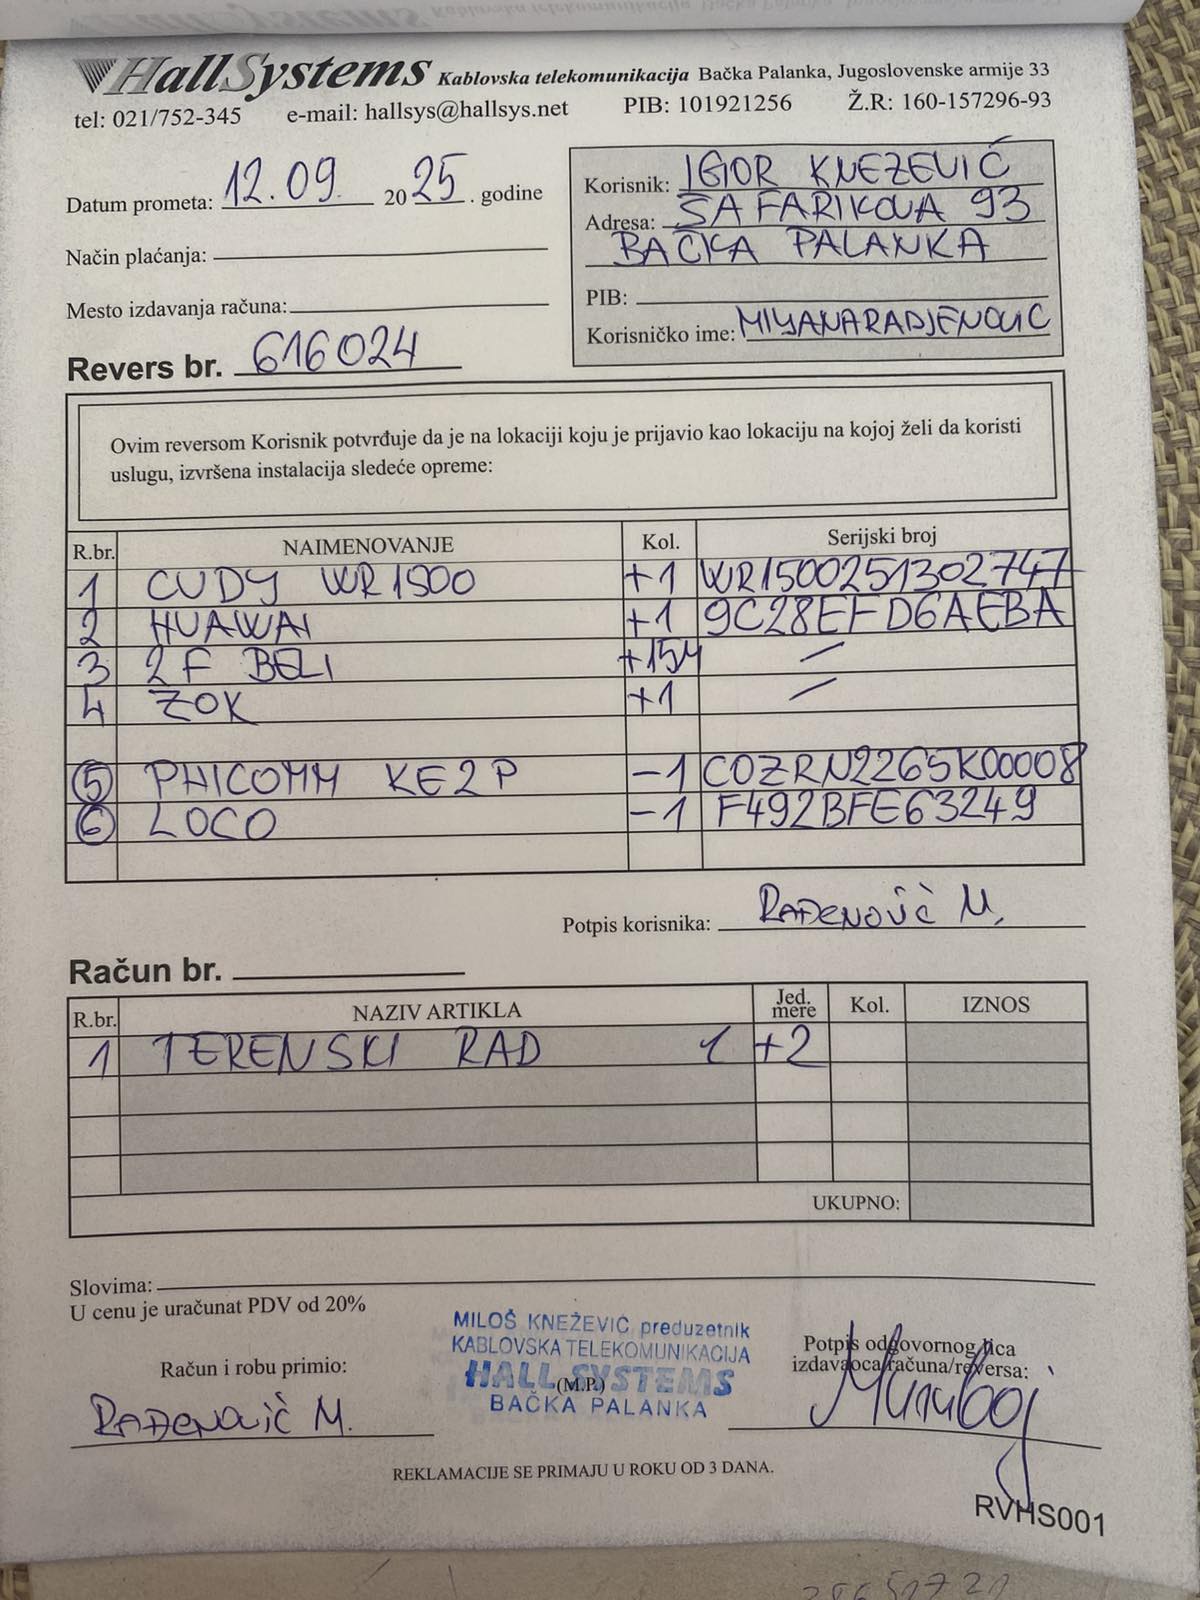 HallSystems Kablovska telekomunikacija Bačka Palanka, Jugoslovenske armije 33
tel: 021/752-345 e-mail: hallsys@hallsys.net PIB: 101921256 Ž.R: 160-157296-93
Datum prometa: 12.09. 2025. godine
Način plaćanja:
Mesto izdavanja računa:
Revers br. 616024
Korisnik: IGOR KNEZEVIĆ
Adresa: ŠAFARIKOVA 93
BAČKA PALANKA
PIB:
Korisničko ime: MILJANARADJENOVIC
Ovim reversom Korisnik potvrđuje da je na lokaciji koju je prijavio kao lokaciju na kojoj želi da koristi
uslugu, izvršena instalacija sledeće opreme:
R.br. NAIMENOVANJE Kol. Serijski broj
1 CUDY WR1500 +1 WR1500251302747
2 HUAWAI +1 9C28EFD6AEBA
3 2F BELI +154 /
4 ZOK +1 /
5 PHICOMM KE2P -1 COZRN2265K00008
6 LOCO -1 F492BFE63249
Potpis korisnika: RAĐENOVIĆ M.
Račun br.
R.br. NAZIV ARTIKLA Jed. mere Kol. IZNOS
1 TERENSKI RAD 1 +2
UKUPNO:
Slovima:
U cenu je uračunat PDV od 20%
Račun i robu primio:
RAĐENOVIĆ M.
MILOŠ KNEŽEVIĆ preduzetnik
KABLOVSKA TELEKOMUNIKACIJA
HALL SYSTEMS
(M.P.)
BAČKA PALANKA
Potpis odgovornog lica
izdavaoca računa/reversa:
REKLAMACIJE SE PRIMAJU U ROKU OD 3 DANA.
RVHS001